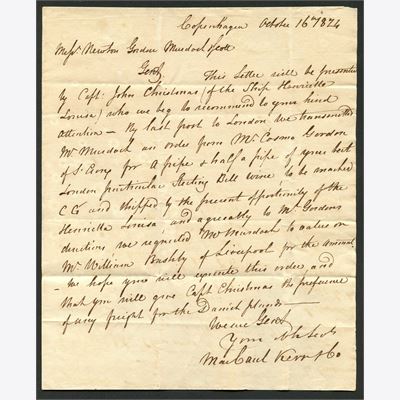 Copenhagen October 16th 1824
Messrs Newton Gordon Murdoch & Scott
Gentn This Letter will be presented
by Captn John Christmas (of the Ship Henrietta
Louisa) who we beg to recommend to your kind
attention – By last post to London we transmitted
Mr Murdoch an order from Mr Cosmo Gordon
of St Croix for A pipe & half a pipe of your best
London particular Sterling Bill wine to be marked
CG and shipped by the present opportunity of the
Henrietta Louisa, and agreeably to Mr Gordons
directions we requested Mr Murdoch to value on
Mr William Bushby of Liverpool for the amount
– We hope you will execute this order, and
that you will give Captn Christmas the preference
of any freight for the Danish
We are Gentn
Your Ob Sevts
MacCaul Kerr & Co